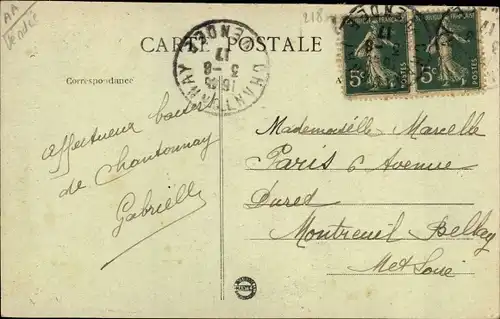 AA
Vendée
218
CARTE POSTALE
Correspondance
CHANTONNAY
VENDEE
16 45
3 - 8
17
5c POSTES
5c POSTES
Affectueux baiser
de Chantonnay
Gabrielle
Mademoiselle Marcelle
Paris 6 Avenue
Duret
Montreuil Bellay
Met Loire